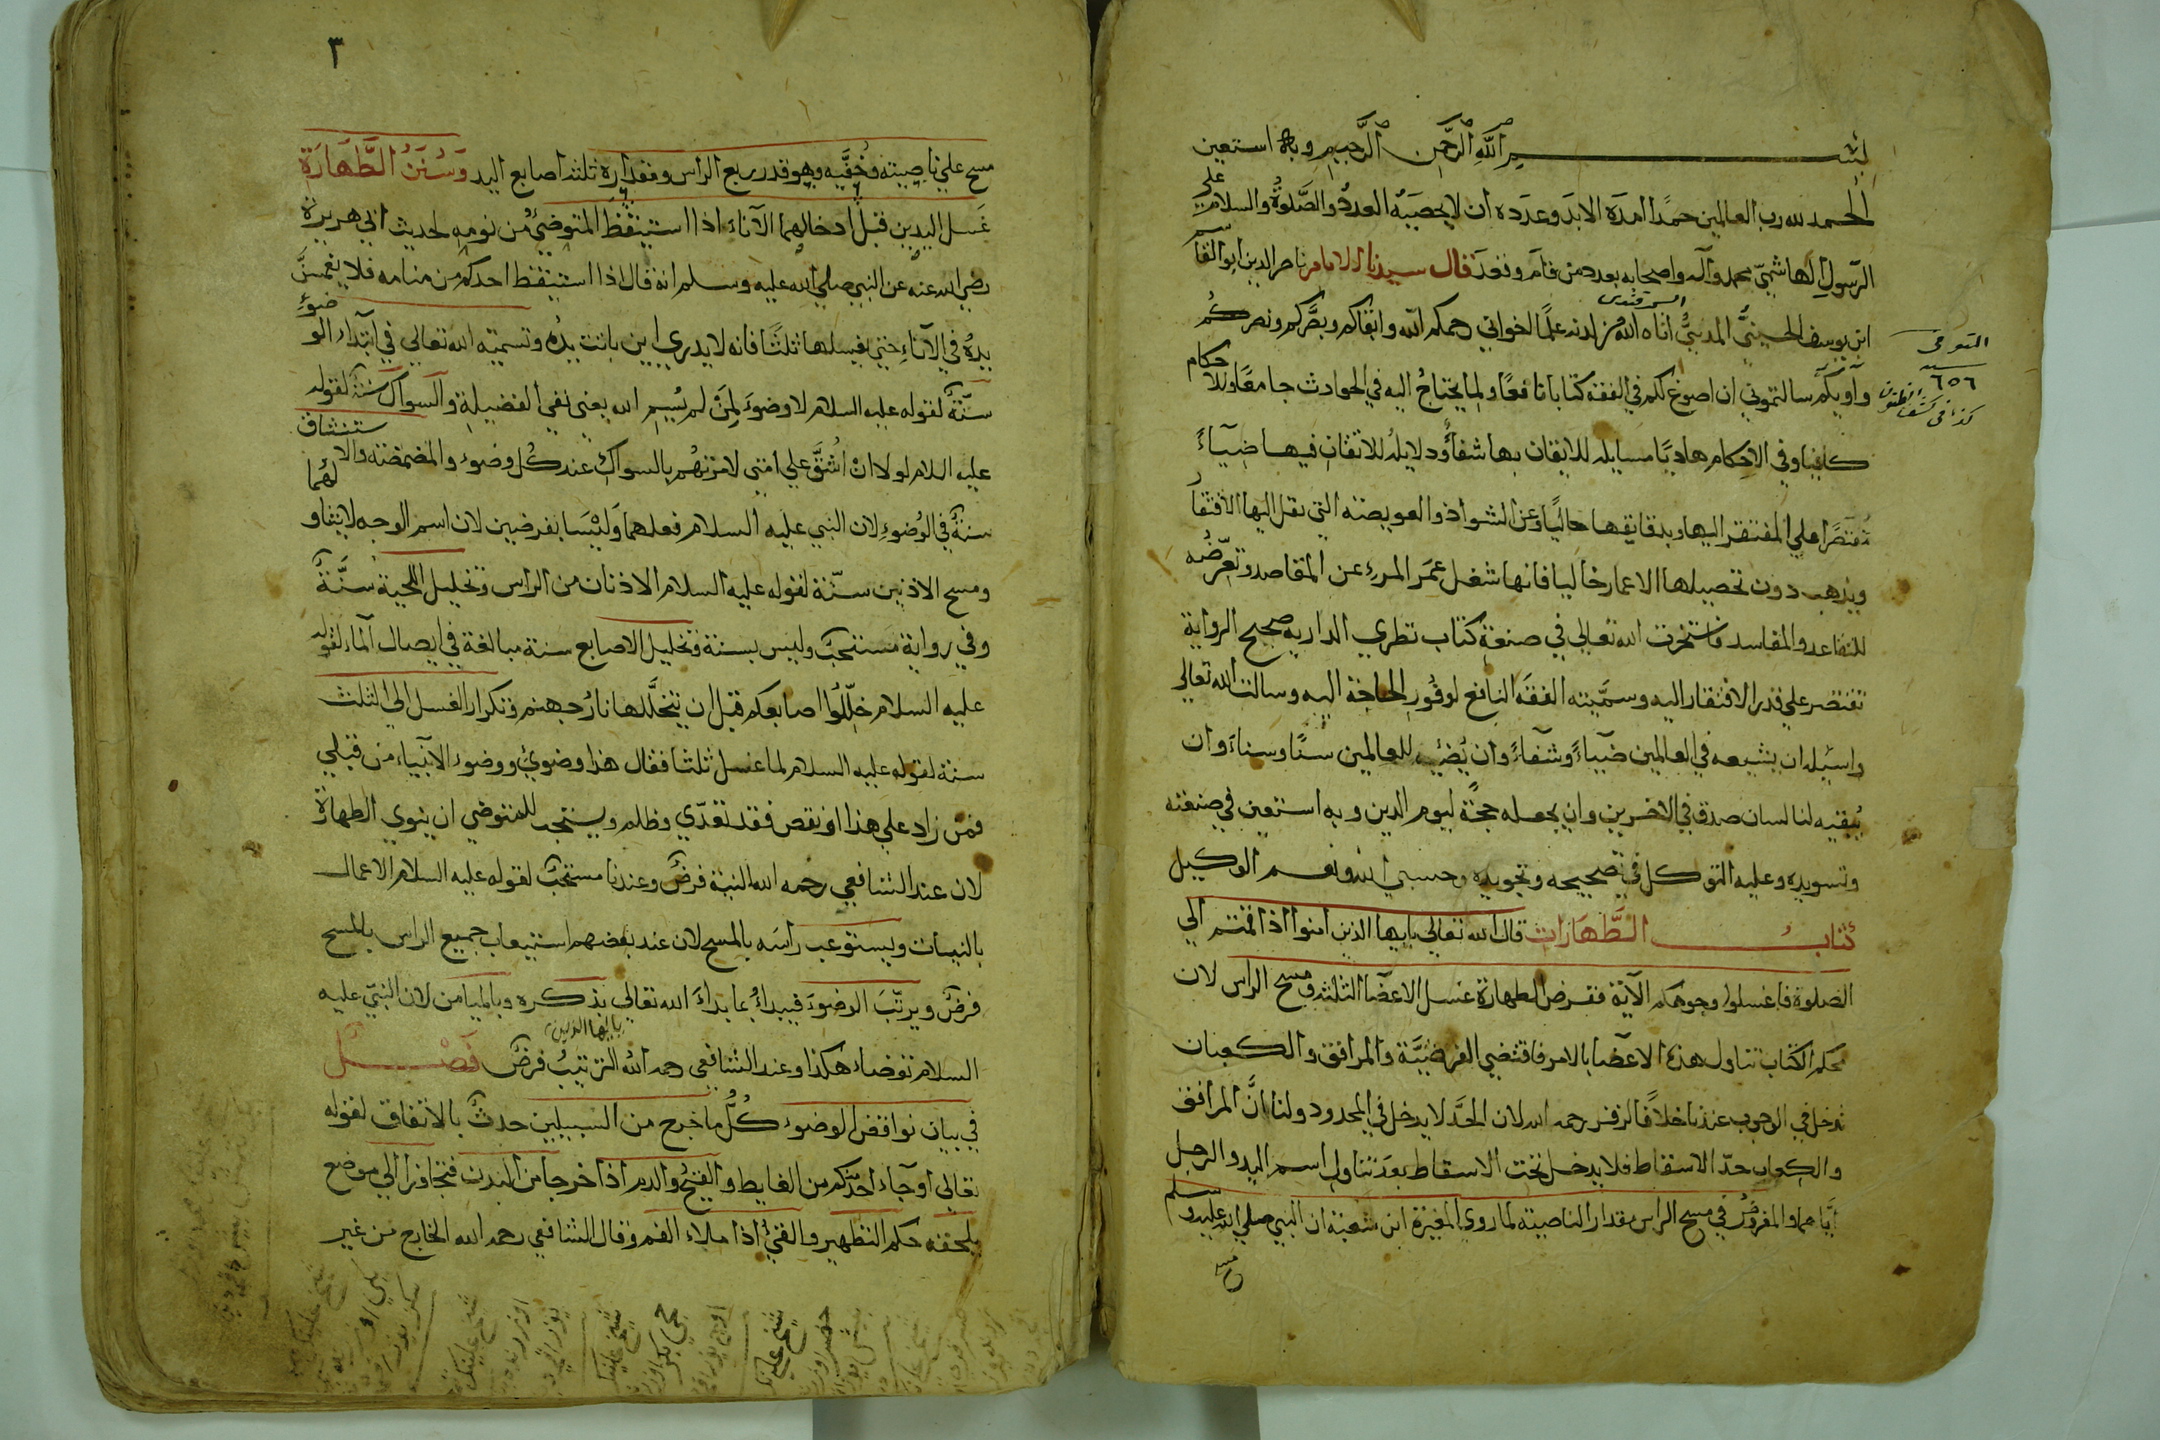 بسم الله الرحمن الرحيم وبه استعين
الحمد لله رب العالمين حمدا امده الابد وعدده ان لا يحصيه العدد والصلوة والسلام على
الرسول الهاشمي محمد وآله واصحابه بعدد من قام وقعد قال سيدنا الامام ناصر الدين ابو القاسم
السمرقندي
ابن يوسف الحسيني المدني اتاه الله من لدنه علما اخواني رحمكم الله وابقاكم وبصركم ونصركم
واويكم سالتموني ان اصوغ لكم في الفقه كتابا نافعا ولما يحتاج اليه في الحوادث جامعا وللاحكام
كافيا وفي الاحكام هاديا مسايله للايقان بها شفاء ودلايله للاتقان فيها ضياء
مقتصرا على المفتقر اليها وبدقايقها حاليا وعن الشواذ والعويصة التي يقل اليها الافتقار
ويذهب دون تحصيلها الاعمار خاليا فانها شغل عمر المرء عن المقاصد وتعرضه
للتقاعد والمفاسد فاستخرت الله تعالى في صنعة كتاب نظري الدراية صحيح الرواية
تقتصر على قدر الافتقار اليه وسميته الفقه النافع لوفور الحاجة اليه وسالت الله تعالى
واسئله ان يشيعه في العالمين ضياء وشفاء وان يضيئه للعالمين سنا وسناء وان
يبقيه لنا لسان صدق في الاخرين وان يجعله حجة ليوم الدين وبه استعين في صنعته
وتسويده وعليه التوكل في تصحيحه وتجويده وحسبي الله ونعم الوكيل
كتاب الطهارات قال الله تعالى يا ايها الذين امنوا اذا قمتم الى
الصلوة فاغسلوا وجوهكم الآية ففرض الطهارة غسل الاعضا الثلثة ومسح الراس لان
محكم الكتاب تناول هذه الاعضا بالامر فاقتضي الفرضية والمرافق والكعبان
تدخل في الوجوب عندنا خلافا لزفر رحمه الله لان الحد لا يدخل في المحدود ولنا ان المرافق
والكعاب حد الاسقاط فلا يدخل تحت الاسقاط بعد تناول اسم اليد والرجل
اياهما والمفروض في مسح الراس مقدار الناصية لما روي المغيرة ابن شعبة ان النبي صلى الله عليه وسلم
مسح
المتوفى
سنه
٦٥٦
كذا في كشف الظنون
٣
مسح على ناصيته وخفيه وهو قدر ربع الراس ومقداره ثلث اصابع اليد وسنن الطهارة
غسل اليدين قبل ادخالهما الآناء اذا استيقظ المتوضئ من نومه لحديث ابي هريرة
رضي الله عنه عن النبي صلى الله عليه وسلم انه قال اذا استيقظ احدكم من منامه فلا يغمسن
يده في الآناء حتى يغسلها ثلثا فانه لا يدري اين باتت يده وتسمية الله تعالى في ابتداء الوضوء
سنة لقوله عليه السلام لا وضوء لمن لم يسم الله يعني نفي الفضيلة والسواك سنة لقوله
عليه السلام لولا ان اشق على امتي لامرتهم بالسواك عند كل وضوء والمضمضة والاستنشاق
سنة في الوضوء لان النبي عليه السلام فعلهما وليسا بفرضين لان اسم الوجه لا يتناولهما
ومسح الاذنين سنة لقوله عليه السلام الاذنان من الراس وتخليل اللحية سنة
وفي رواية مستحب وليس بسنة وتخليل الاصابع سنة مبالغة في ايصال الماء لقوله
عليه السلام خللوا اصابعكم قبل ان تخللها نار جهنم وتكرار الغسل الى الثلث
سنة لقوله عليه السلام لما غسل ثلثا فقال هذا وضوئي ووضوء الانبياء من قبلي
فمن زاد على هذا او نقص فقد تعدي وظلم ويستحب للمتوضي ان ينوي الطهارة
لان عند الشافعي رحمه الله النية فرض وعندنا مستحب لقوله عليه السلام الاعمال
بالنيات ويستوعب راسه بالمسح لان عند بعضهم استيعاب جميع الراس بالمسح
فرض ويرتب الوضوء فيبدأ بما بدا الله تعالى بذكره وبالميامن لان النبي عليه
يا ايها الذين
السلام توضاء هكذا وعند الشافعي رحمه الله الترتيب فرض فصل
في بيان نواقض الوضوء كل ما خرج من السبيلين حدث بالاتفاق لقوله
تعالى او جاء احد منكم من الغايط والقيح والدم اذا خرجا من البدن فتجاوزا الى موضع
يلحقه حكم التطهير والقيء اذا ملاء الفم وقال الشافعي رحمه الله الخارج من غير